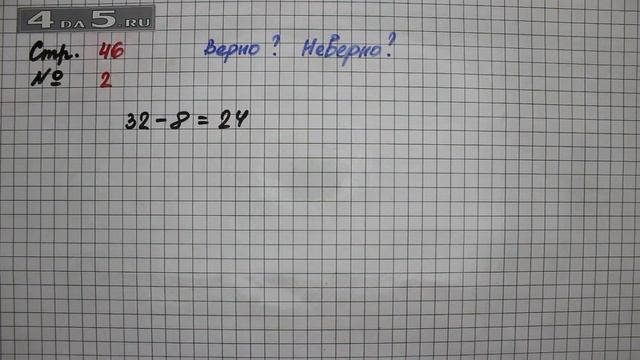 4 DA 5.RU
Стр. 46 Верно? Неверно?
№ 2
32-8=24